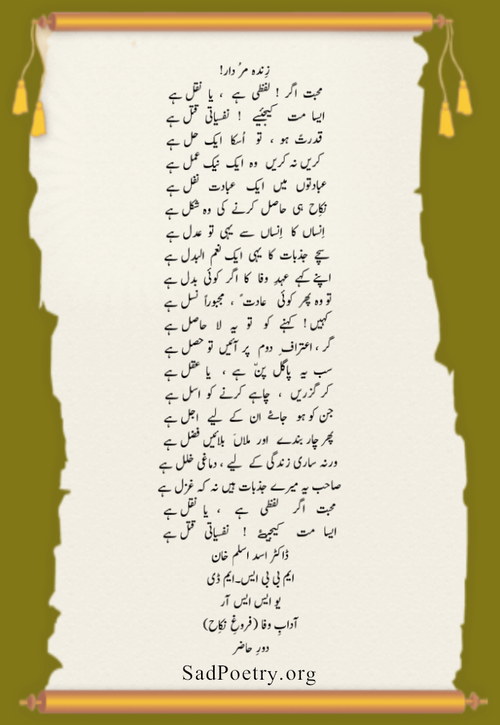 زِندہ مرُدار!
محبت اگر ! لفظی ہے ، یا نقل ہے
ایسا مت کیجئیے ! نفسیاتی قتل ہے
قدرتؐ ہو ، تو اُسکا ایک حل ہے
کریں نہ کریں وہ ایک نیک عمل ہے
عبادتوں میں ایک عبادت نفل ہے
نکاح ہی حاصل کرنے کی وہ شکل ہے
اِنساں کا اِنساں سے یہی تو عدل ہے
سچے جذبات کا یہی ایک نعم البدل ہے
اپنے کہے عہدِ وفا کا اگر کوئی بدل ہے
تو وہ پھر کوئی عادتً ، مجبوراً نسل ہے
کہیں! کہنے کو تو یہ لا حاصل ہے
گر ، اعترافِ دوم پر آئیں تو حصل ہے
سب یہ پاگل پنّ ہے ، یا عقل ہے
کر گزریں ، چاہے کرنے کو اسل ہے
جن کو ہو جائے ان کے لیے اجل ہے
پھر چار بندے اور ملاں بلائیں فضل ہے
ورنہ ساری زندگی کے لیے ، دماغی خلل ہے
صاحب یہ میرے جذبات ہیں نہ کہ غزل ہے
محبت اگر لفظی ہے ، یا نقل ہے
ایسا مت کیجیئے ! نفسیاتی قتل ہے
ڈاکٹر اسد اسلم خان
ایم بی بی ایس۔ایم ڈی
یو ایس ایس آر
آدابِ وفا (فروغِ نکاح)
دورِ حاضر
SadPoetry.org